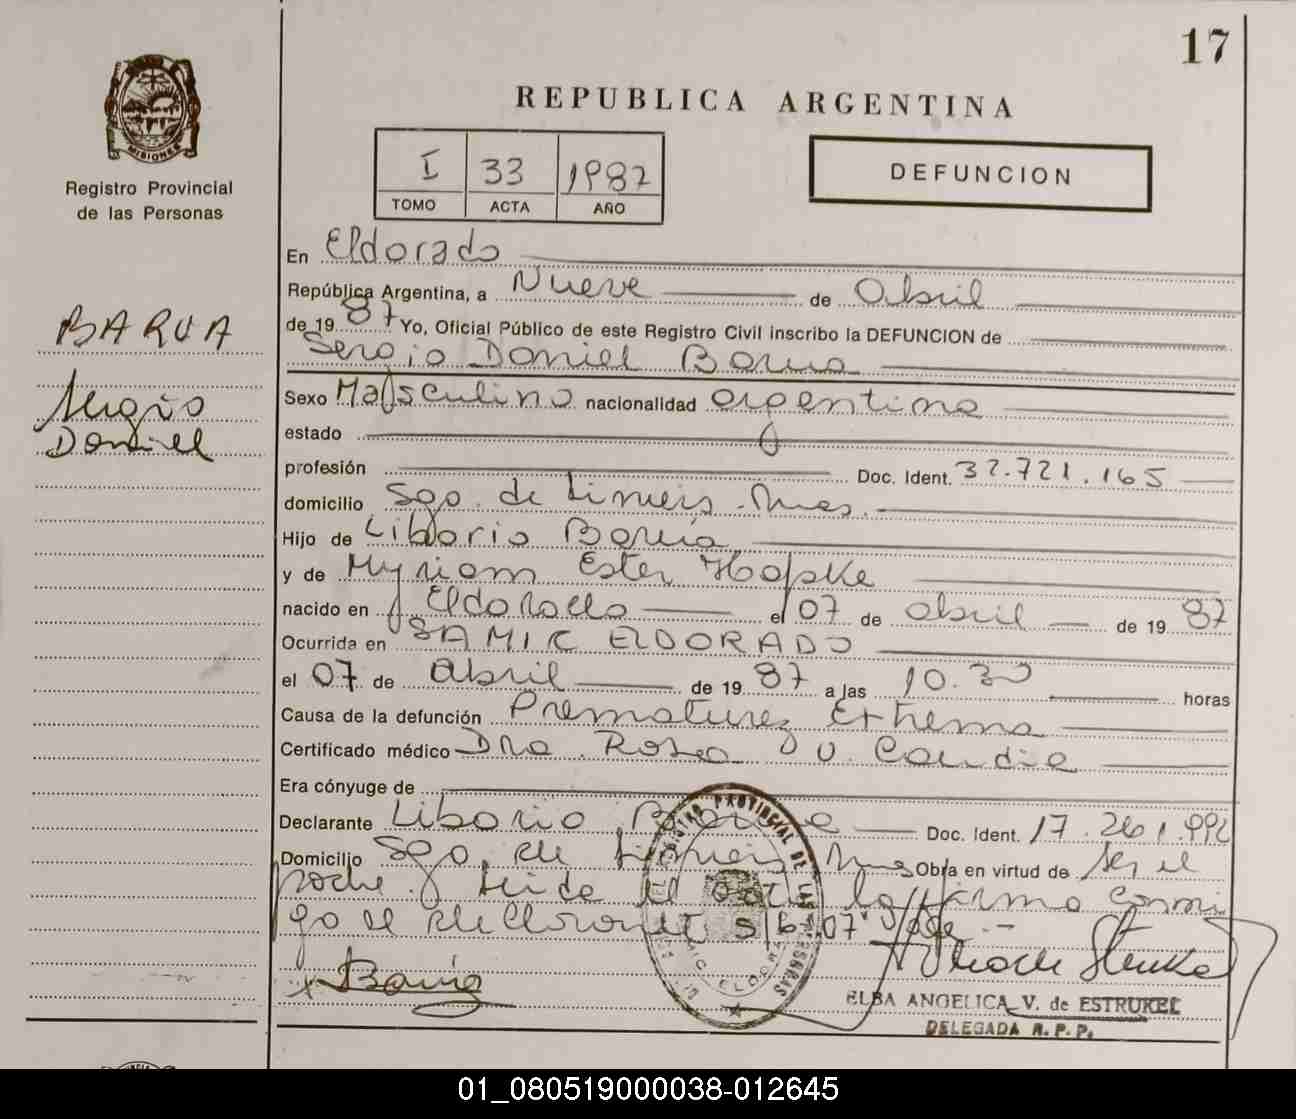 17
REPUBLICA ARGENTINA
MISIONES
Registro Provincial
de las Personas
I 33 1987
TOMO ACTA AÑO
DEFUNCION
BARUA
Sergio
Daniel
En Eldorado
República Argentina, a Nueve de Abril
de 1987 Yo, Oficial Público de este Registro Civil inscribo la DEFUNCION de
Sergio Daniel Barua
Sexo Masculino nacionalidad argentina
estado
profesión Doc. Ident. 32.721.165
domicilio Sgo. de Liniers. Mnes.
Hijo de Liborio Barúa
y de Myriam Ester Hopke
nacido en Eldorado el 07 de abril de 1987
Ocurrida en SAMIC ELDORADO
el 07 de Abril de 1987 a las 10.30 horas
Causa de la defunción Prematurez Extrema
Certificado médico Dra. Rosa
Era cónyuge de
Declarante Liborio Barua Doc. Ident. 17.261.992
Domicilio Sgo. de Liniers Mnes Obra en virtud de ser el
padre. Leida el acta la firma conmi
go el declarante
Barúa
ELBA ANGELICA V. de ESTRUKEL
DELEGADA R. P. P.
01_080519000038-012645